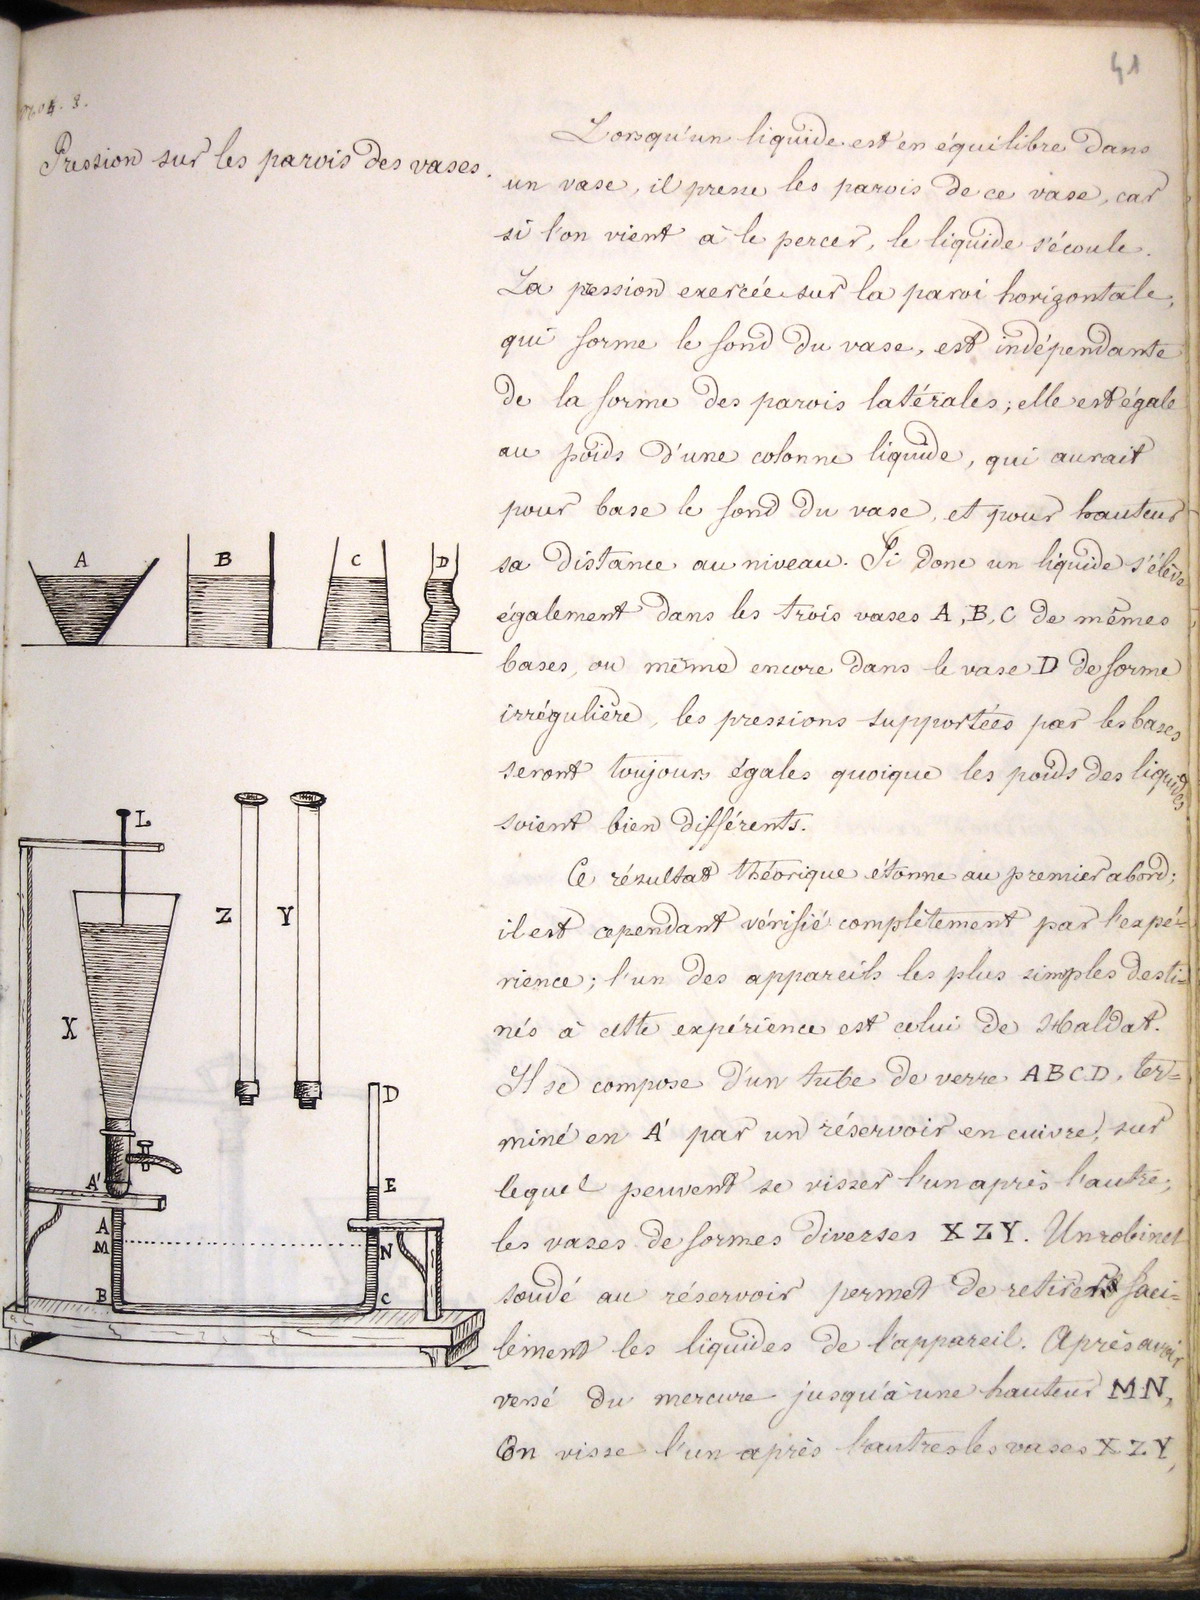 41
Pression sur les parois des vases.
Lorsqu'un liquide est en équilibre dans
un vase, il presse les parois de ce vase, car
si l'on vient à le percer, le liquide s'écoule.
La pression exercée sur la paroi horizontale,
qui forme le fond du vase, est indépendante
de la forme des parois latérales; elle est égale
au poids d'une colonne liquide, qui aurait
pour base le fond du vase, et pour hauteur
sa distance au niveau. Si donc un liquide s'élève
également dans les trois vases A, B, C de mêmes
bases, ou même encore dans le vase D de forme
irrégulière, les pressions supportées par les bases
seront toujours égales quoique les poids des liquides
soient bien différents.
Ce résultat théorique étonne au premier abord;
il est cependant vérifié complètement par l'expé=
rience; l'un des appareils les plus simples desti=
nés à cette expérience est celui de Haldat.
Il se compose d'un tube de verre ABCD, ter=
miné en A' par un réservoir en cuivre, sur
lequel peuvent se visser l'un après l'autre,
les vases de formes diverses X Z Y. Un robinet
soudé au réservoir permet de retirer faci=
lement les liquides de l'appareil. Après avoir
versé du mercure jusqu'à une hauteur MN,
On visse l'un après l'autre les vases X Z Y,
A
B
C
D
L
Z
Y
X
D
A'
E
A
M
N
B
C